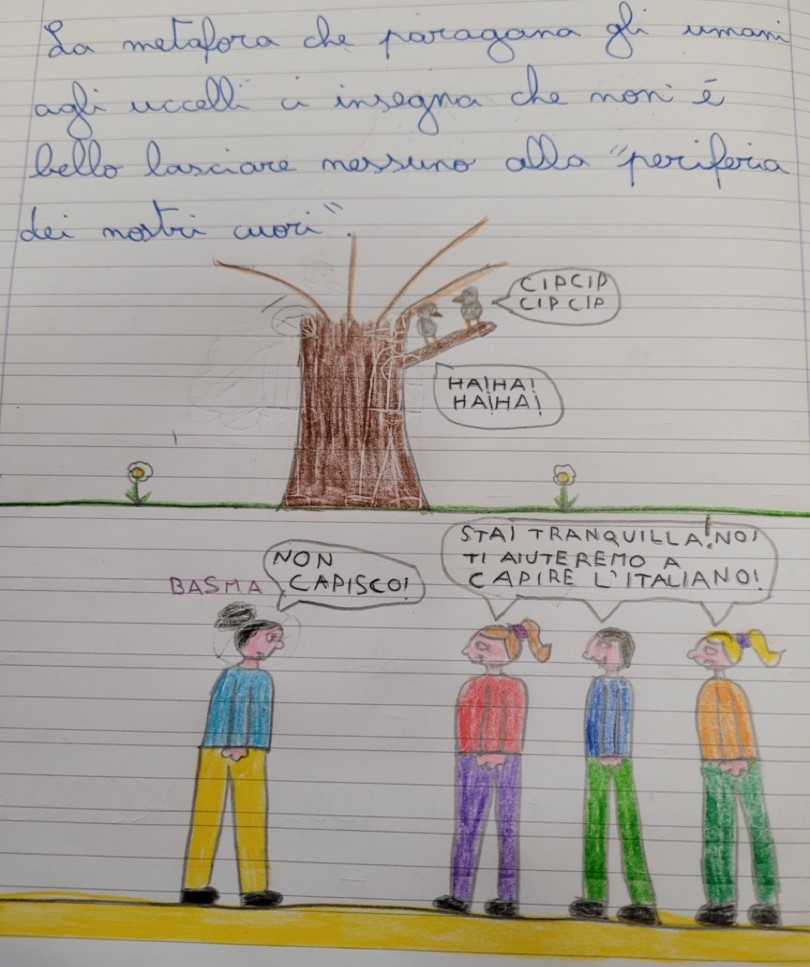 La metafora che paragona gli umani
agli uccelli ci insegna che non è
bello lasciare nessuno alla "periferia
dei nostri cuori".
CIPCIP
CIP CIP
HA!HA!
HA!HA!
BASMA
NON
CAPISCO!
STAI TRANQUILLA! NOI
TI AIUTEREMO A
CAPIRE L'ITALIANO!